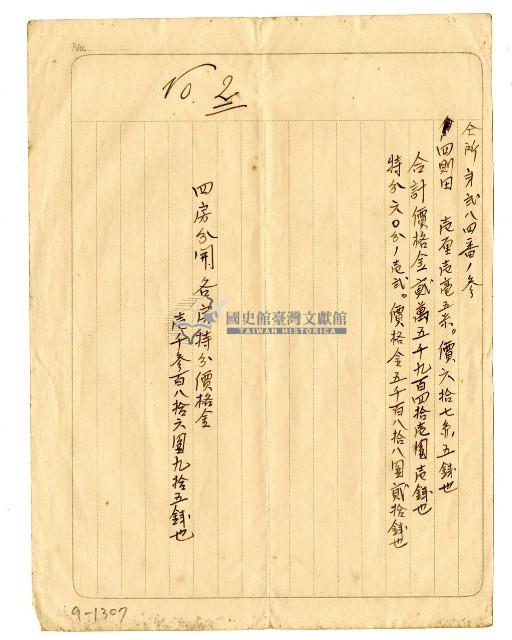 No.
No. 2
仝所字貳八四番ノ参
四則田 壱厘壱毫五糸。價六拾七糸五錢也
合計價格金貳萬五千九百四拾壱圓壱錢也
持分六〇分ノ壱貳。價格金五千百八拾八圓貳拾錢也
四房分開各房持分價格金
壱千参百八拾六圓九拾五錢也
國史館臺灣文獻館
TAIWAN HISTORICA
9-1307